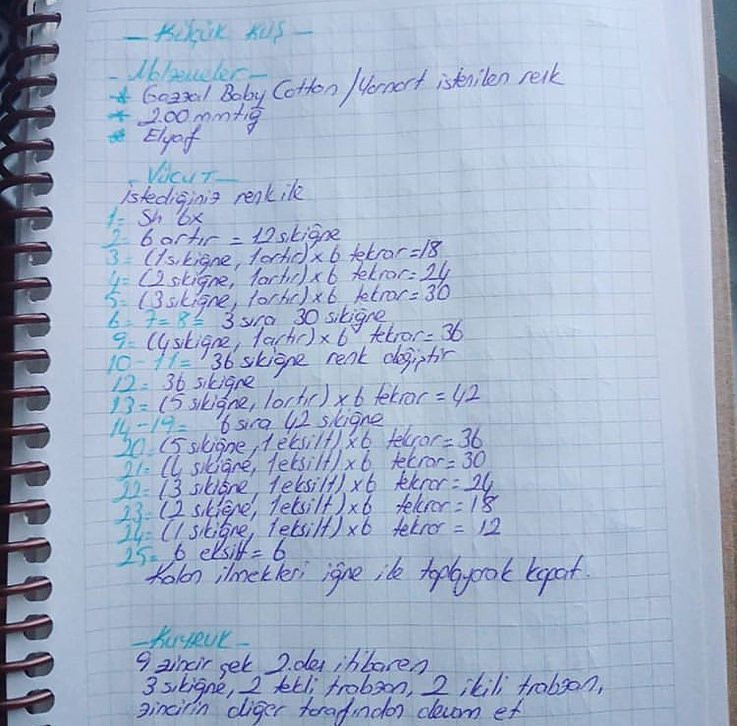 - Küçük Kuş -
- Malzemeler -
* Gazzal Baby Cotton / Yarnart istenilen renk
* 2.00 mm tığ
* Elyaf
- Vücut -
İstediğiniz renk ile
1= Sh 6x
2= 6 artır = 12 sıkiğne
3= (1 sıkiğne, 1artır) x 6 tekrar = 18
4= (2 sıkiğne, 1artır) x 6 tekrar = 24
5= (3 sıkiğne, 1artır) x 6 tekrar = 30
6= 7= 8= 3 sıra 30 sıkiğne
9= (4 sıkiğne, 1artır) x 6 tekrar = 36
10-11= 36 sıkiğne renk değiştir
12= 36 sıkiğne
13= (5 sıkiğne, 1artır) x 6 tekrar = 42
14-19= 6 sıra 42 sıkiğne
20= (5 sıkiğne, 1eksilt) x 6 tekrar = 36
21= (4 sıkiğne, 1eksilt) x 6 tekrar = 30
22= (3 sıkiğne, 1eksilt) x 6 tekrar = 24
23= (2 sıkiğne, 1eksilt) x 6 tekrar = 18
24= (1 sıkiğne, 1eksilt) x 6 tekrar = 12
25= 6 eksilt = 6
Kalan ilmekleri iğne ile toplayarak kapat.
- Kuyruk -
9 zincir çek 2.den itibaren
3 sıkiğne, 2 tekli trabzan, 2 ikili trabzan,
zincirin diğer tarafından devam et